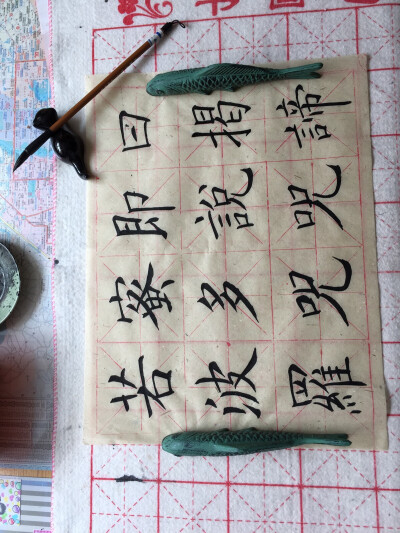 若波羅
蜜多咒
即說咒
曰揭諦